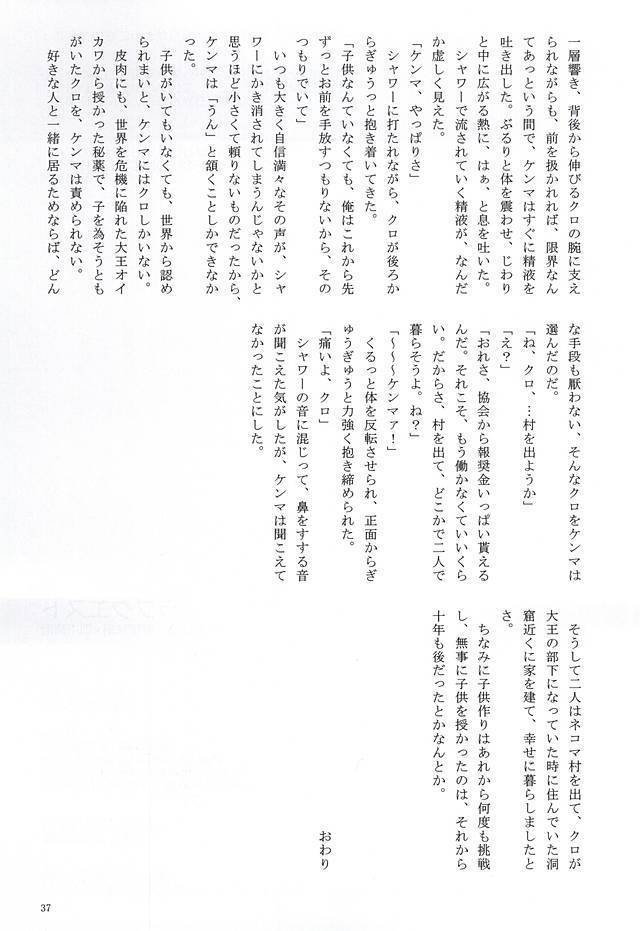 「ケンマ、やっぱりさ」
シャワーに打たれながら、クロが後ろか
らぎゅうっと抱き着いてきた。
「子供なんていなくても、俺はこれから先
ずっとお前を手放すつもりないから、その
つもりでいて」
いつも大きく自信満々なその声が、シャ
ワーにかき消されてしまうんじゃないかと
思うほど小さくて頼りないものだったから、
ケンマは「うん」と頷くことしかできなか
った。
子供がいてもいなくても、世界から認め
られまいと、ケンマにはクロしかいない。
皮肉にも、世界を危機に陥れた大王オイ
カワから授かった秘薬で、子を為そうとも
がいたクロを、ケンマは責められない。
好きな人と一緒に居るためならば、どん
な手段も厭わない、そんなクロをケンマは
選んだのだ。
「ね、クロ、…村を出ようか」
「え？」
「おれさ、協会から報奨金いっぱい貰える
んだ。それこそ、もう働かなくていいくら
い。だからさ、村を出て、どこかで二人で
暮らそうよ。ね？」
「～～～ケンマァ！」
くるっと体を反転させられ、正面からぎ
ゅうぎゅうと力強く抱き締められた。
「痛いよ、クロ」
シャワーの音に混じって、鼻をすする音
が聞こえた気がしたが、ケンマは聞こえて
なかったことにした。
そうして二人はネコマ村を出て、クロが
大王の部下になっていた時に住んでいた洞
窟近くに家を建て、幸せに暮らしましたと
さ。
ちなみに子供作りはあれから何度も挑戦
し、無事に子供を授かったのは、それから
十年も後だったとかなんとか。
おわり
37